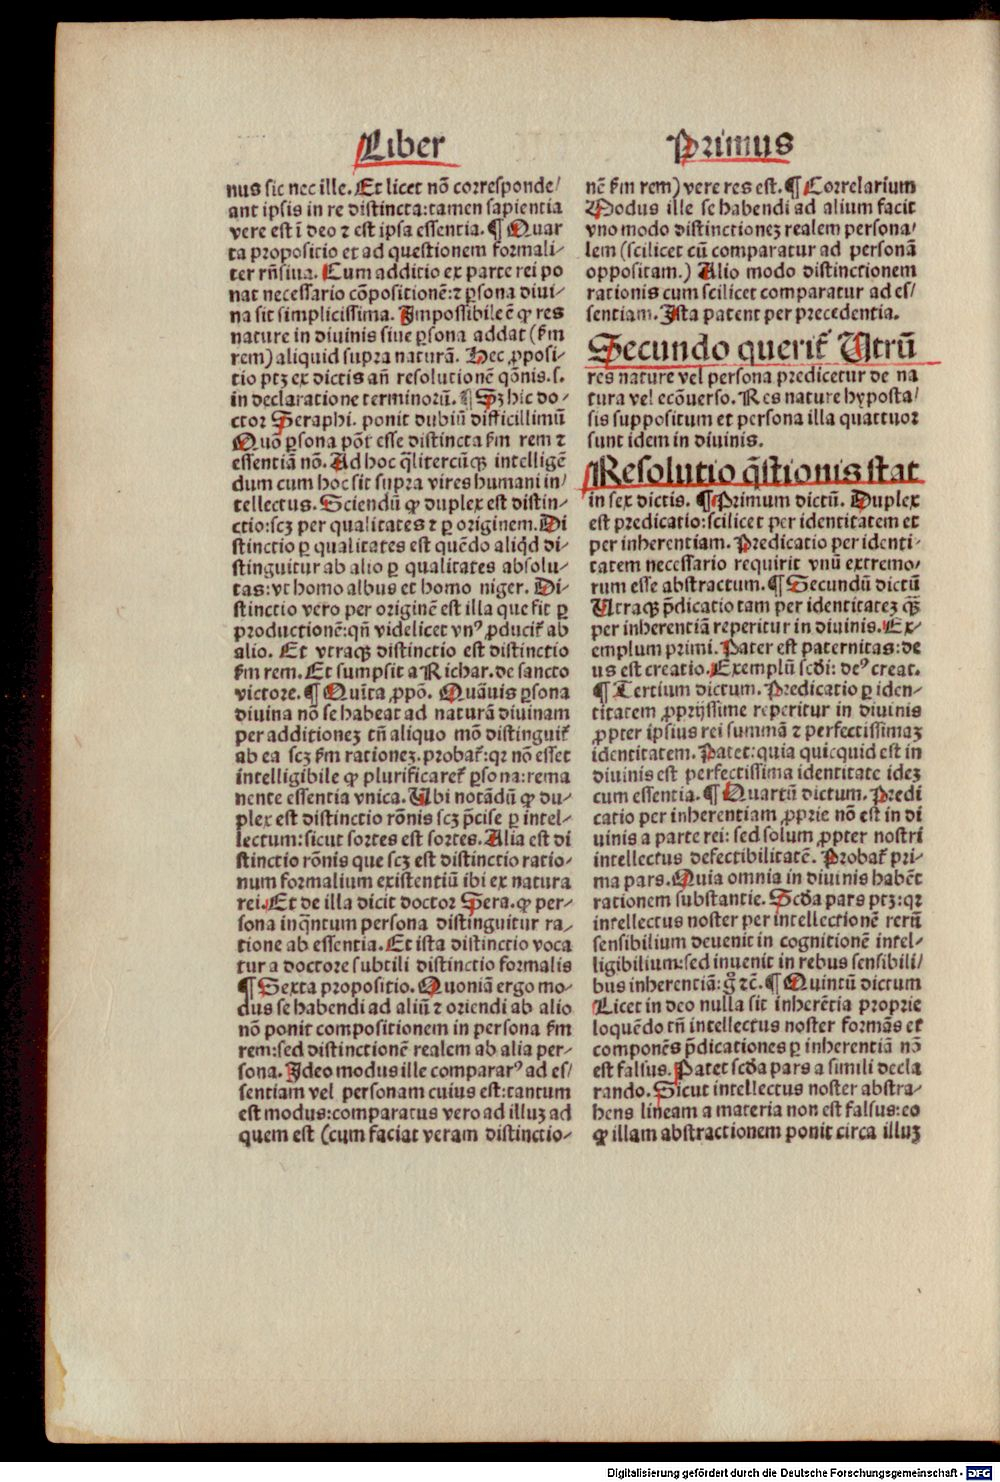 Liber
nus sic nec ille. Et licet nō corresponde/
ant ipsis in re distincta: tamen sapientia
vere est ī deo ⁊ est ipsa essentia. ¶ Quar
ta propositio et ad questionem formali-
ter rn̄siua. Cum additio ex parte rei po
nat necessario cōpositionē: ⁊ ꝑsona diui-
na sit simplicissima. Impossibile ē ꝙ res
nature in diuinis siue ꝑsona addat (ẜm
rem) aliquid supra naturā. Hec ꝓposi-
tio ptꝫ ex dictis an̄ resolutionē qōnis. s.
in declaratione terminorū. ¶ Sꝫ hic do-
ctor Seraphi. ponit dubiū difficillimū
Quō ꝑsona pōt esse distincta ẜm rem ⁊
essentiā nō. Ad hoc q̄litercūqꝫ intelligē
dum cum hoc sit supra vires humani in/
tellectus. Sciendū ꝙ duplex est distin-
ctio: scꝫ per qualitates ⁊ ꝑ originem. Di
stinctio ꝑ qualitates est quēdo aliqd di-
stinguitur ab alio ꝑ qualitates absolu-
tas: vt homo albus et homo niger. Di-
stinctio vero per originē est illa que fit ꝑ
productionē: qn̄ videlicet vnꝰ ꝓducit̄ ab
alio. Et vtraqꝫ distinctio est distinctio
ẜm rem. Et sumpsit a Richar. de sancto
victore. ¶ Quīta ꝓpō. Quāuis ꝑsona
diuina nō se habeat ad naturā diuinam
per additioneꝫ tn̄ aliquo mō distinguit̄
ab ea scꝫ ẜm rationeꝫ. probat̄: qꝛ nō esset
intelligibile ꝙ plurificaret̄ ꝑsona: rema
nente essentia vnica. Ubi notādū ꝙ du-
plex est distinctio rōnis scꝫ p̄cise ꝑ intel-
lectum: sicut sortes est sortes. Alia est di
stinctio rōnis que scꝫ est distinctio ratio-
num formalium existentiū ibi ex natura
rei. Et de illa dicit doctor Sera. ꝙ per-
sona inq̄ntum persona distinguitur ra-
tione ab essentia. Et ista distinctio voca
tur a doctore subtili distinctio formalis
¶ Sexta propositio. Quoniā ergo mo-
dus se habendi ad aliū ⁊ oriendi ab alio
nō ponit compositionem in persona ẜm
rem: sed distinctionē realem ab alia per-
sona. Ideo modus ille compararꝰ ad es/
sentiam vel personam cuius est: tantum
est modus: comparatus vero ad illuꝫ ad
quem est (cum faciat veram distinctio-
Primus
nē ẜm rem) vere res est. ¶ Correlarium
Modus ille se habendi ad alium facit
vno modo distinctioneꝫ realem persona/
lem (scilicet cū comparatur ad personā
oppositam.) Alio modo distinctionem
rationis cum scilicet comparatur ad es/
sentiam. Ista patent per precedentia.
Secundo querit̄ Utrū
res nature vel persona predicetur de na
tura vel ecōuerso. Res nature hyposta/
sis suppositum et persona illa quattuor
sunt idem in diuinis.
Resolutio q̄stionis stat
in sex dictis. ¶ Primum dictū. Duplex
est predicatio: scilicet per identitatem et
per inherentiam. Predicatio per identi-
tatem necessario requirit vnū extremo/
rum esse abstractum. ¶ Secundū dictū
Utraqꝫ p̄dicatio tam per identitateꝫ q̄ꝫ
per inherentiā reperitur in diuinis. Ex-
emplum primi. Pater est paternitas: de
us est creatio. Exemplū scďi: deꝰ creat.
¶ Tertium dictum. Predicatio ꝑ iden-
titatem ꝓprijssime reperitur in diuinis
ꝓpter ipsius rei summā ⁊ perfectissimaꝫ
identitatem. Patet: quia quicquid est in
diuinis est perfectissima identitate ideꝫ
cum essentia. ¶ Quartū dictum. Predi
catio per inherentiam ꝓprie nō est in di
uinis a parte rei: sed solum ꝓpter nostri
intellectus defectibilitatē. Probat̄ pri-
ma pars. Quia omnia in diuinis habēt
rationem substantie. Scďa pars ptꝫ: qꝛ
intellectus noster per intellectionē rerū
sensibilium deuenit in cognitionē intel-
ligibilium: sed inuenit in rebus sensibili/
bus inherentiā: gͦ ⁊c̄. ¶ Quintū dictum
Licet in deo nulla sit inherētia proprie
loquēdo tn̄ intellectus noster formās et
componēs p̄dicationes ꝑ inherentiā nō
est falsus. Patet scďa pars a simili decla
rando. Sicut intellectus noster abstra-
hens lineam a materia non est falsus: eo
ꝙ illam abstractionem ponit circa illuꝫ
Digitalisierung gefördert durch die Deutsche Forschungsgemeinschaft - DFG